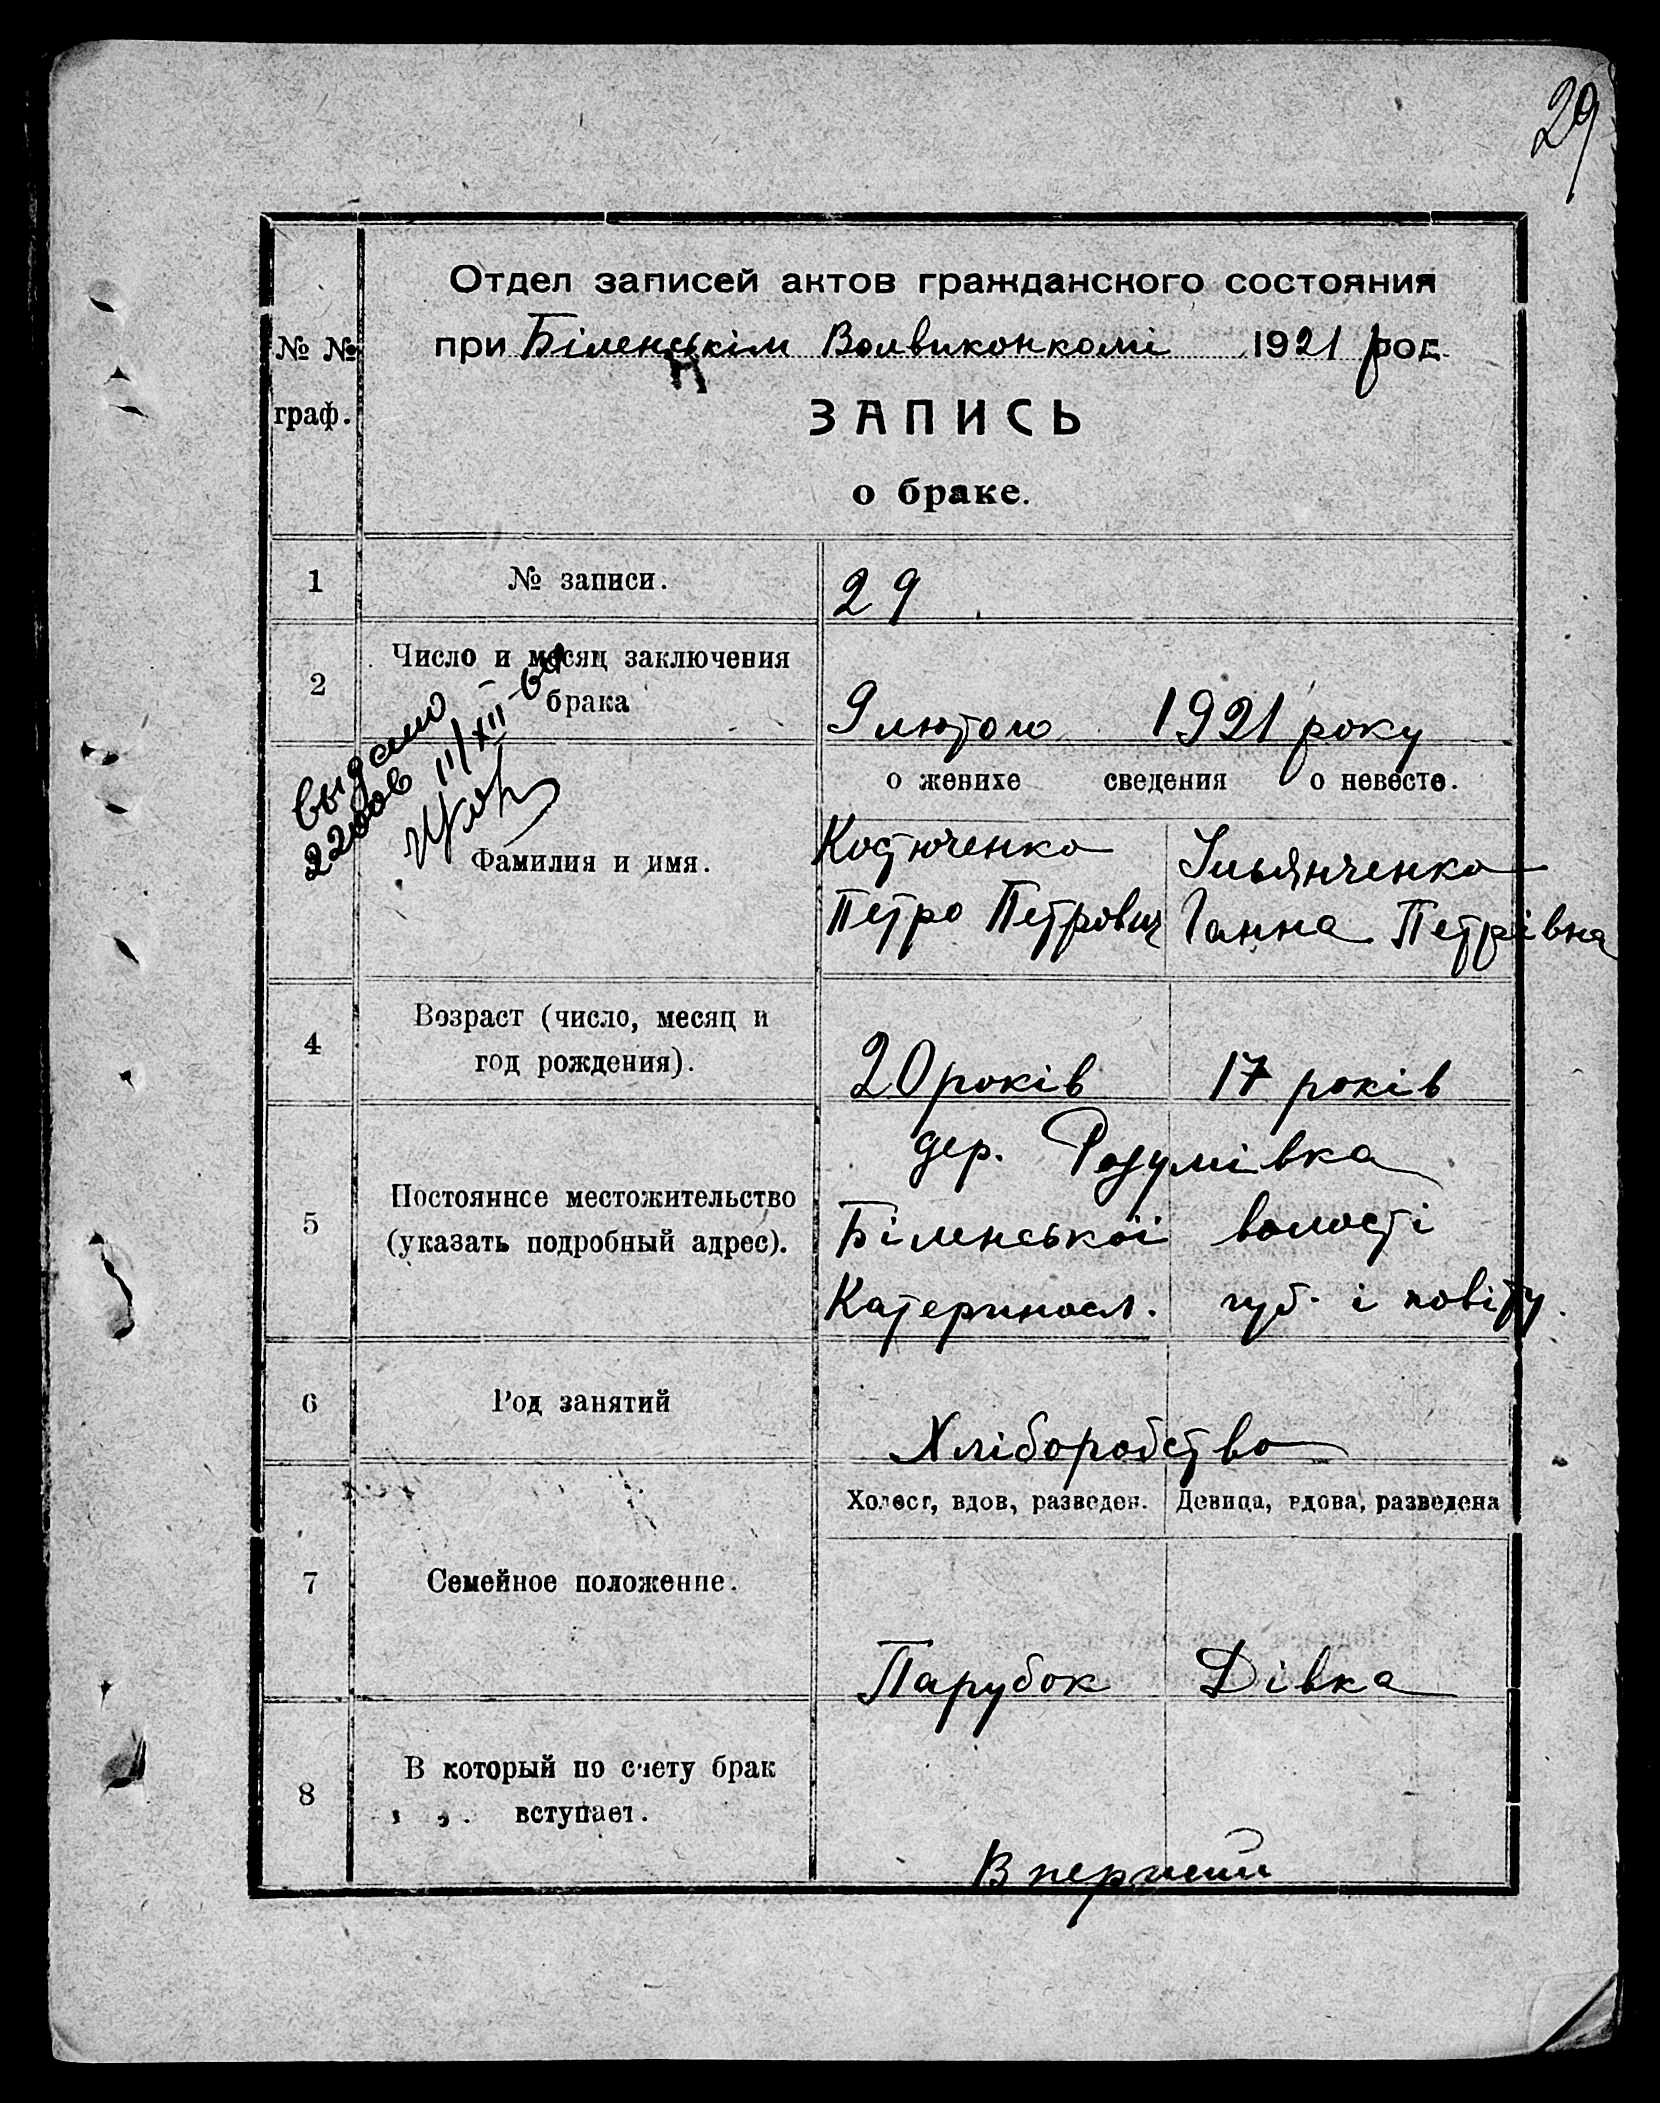 29
Отдел записей актов гражданского состояния
№ №
граф.
при Біленськім Волвиконкомі 1921 род.
ЗАПИСЬ
о браке.
1 № записи. 29
2 Число и месяц заключения
брака 9 лютого 1921 року
выдано
о женихе сведения о невесте.
Фамилия и имя.
Костюченко Ульянченко
Петро Петрович Ганна Петрівна
4 Возраст (число, месяц и
год рождения). 20 років 17 років
5 Постоянное местожительство
(указать подробный адрес).
дер. Розумівка
Біленської волості
Катериносл. губ. і повіту.
6 Род занятий Хліборобство
Холост, вдов, разведен. Девица, вдова, разведена
7 Семейное положение.
Парубок Дівка
8 В который по счету брак
вступает.
В перший